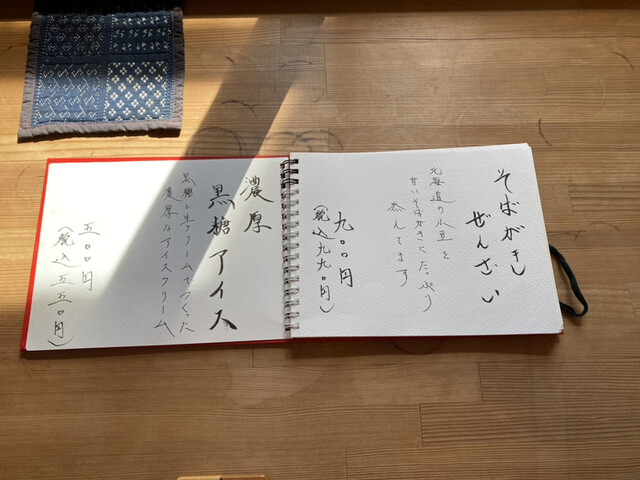 そばがき
ぜんざい
北海道の小豆を
甘いそばがきにたっぷり
添えてます
九〇〇円
(税込九九〇円)
濃厚
黒糖アイス
黒糖と生クリームでつくった
濃厚なアイスクリーム
五〇〇円
(税込五五〇円)